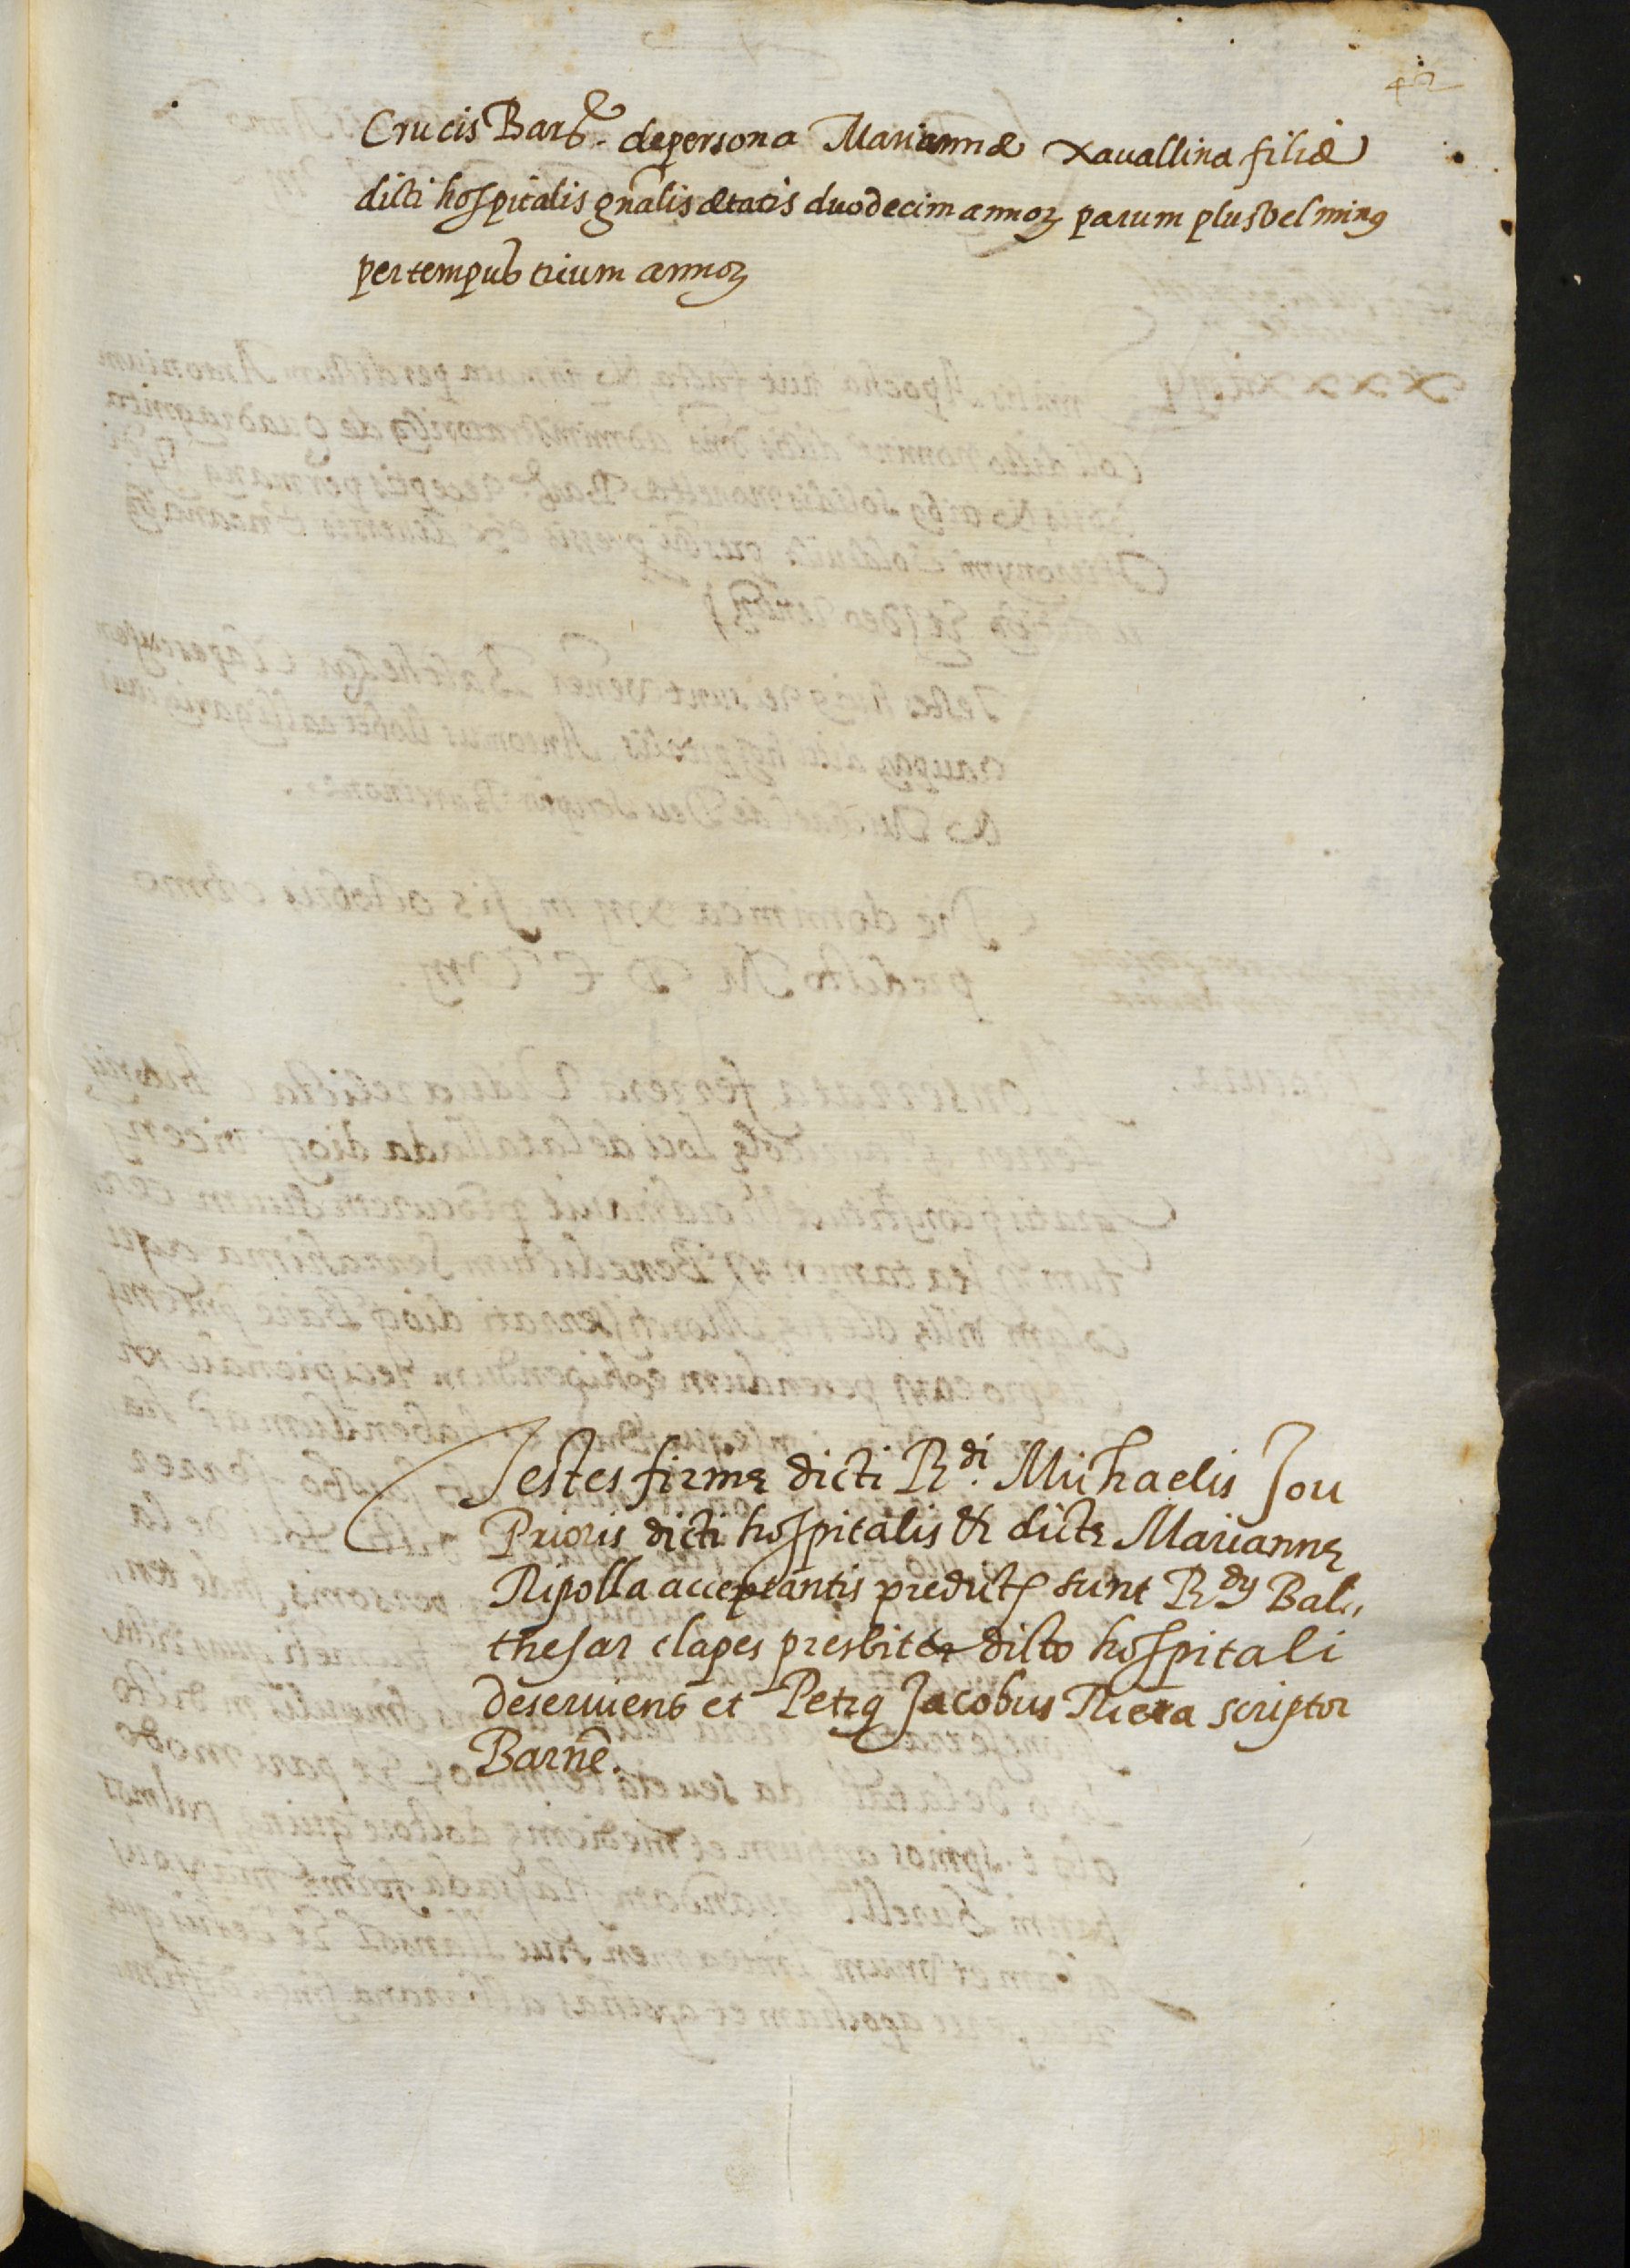 42
Crucis Barñe. de persona Mariannæ Xauallina filiæ
dicti hospitalis gñalis ætatis duodecim annoꝝ parum plus vel minꝰ
per tempus trium annoꝝ
Testes firmę dicti R.di Michaelis Jou
Prioris dicti hospitalis & dictę Mariannę
Ripolla acceptantis predict sunt R.dꝰ Bal,,
thesar clapes presbiter dicto hospitali
deseruiens et Petrꝰ Jacobus Riera scriptor
Barñe.